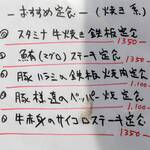 －おすすめ定食－ (焼き系)
◎ スタミナ牛焼き鉄板定食 1350
◎ 鮪(マグロ)ステーキ定食 1350
◎ 豚ハラミの鉄板焼肉定食 1.100
豚 のペッパー焼定食 1.100
牛赤身のサイコロステーキ定食 1350